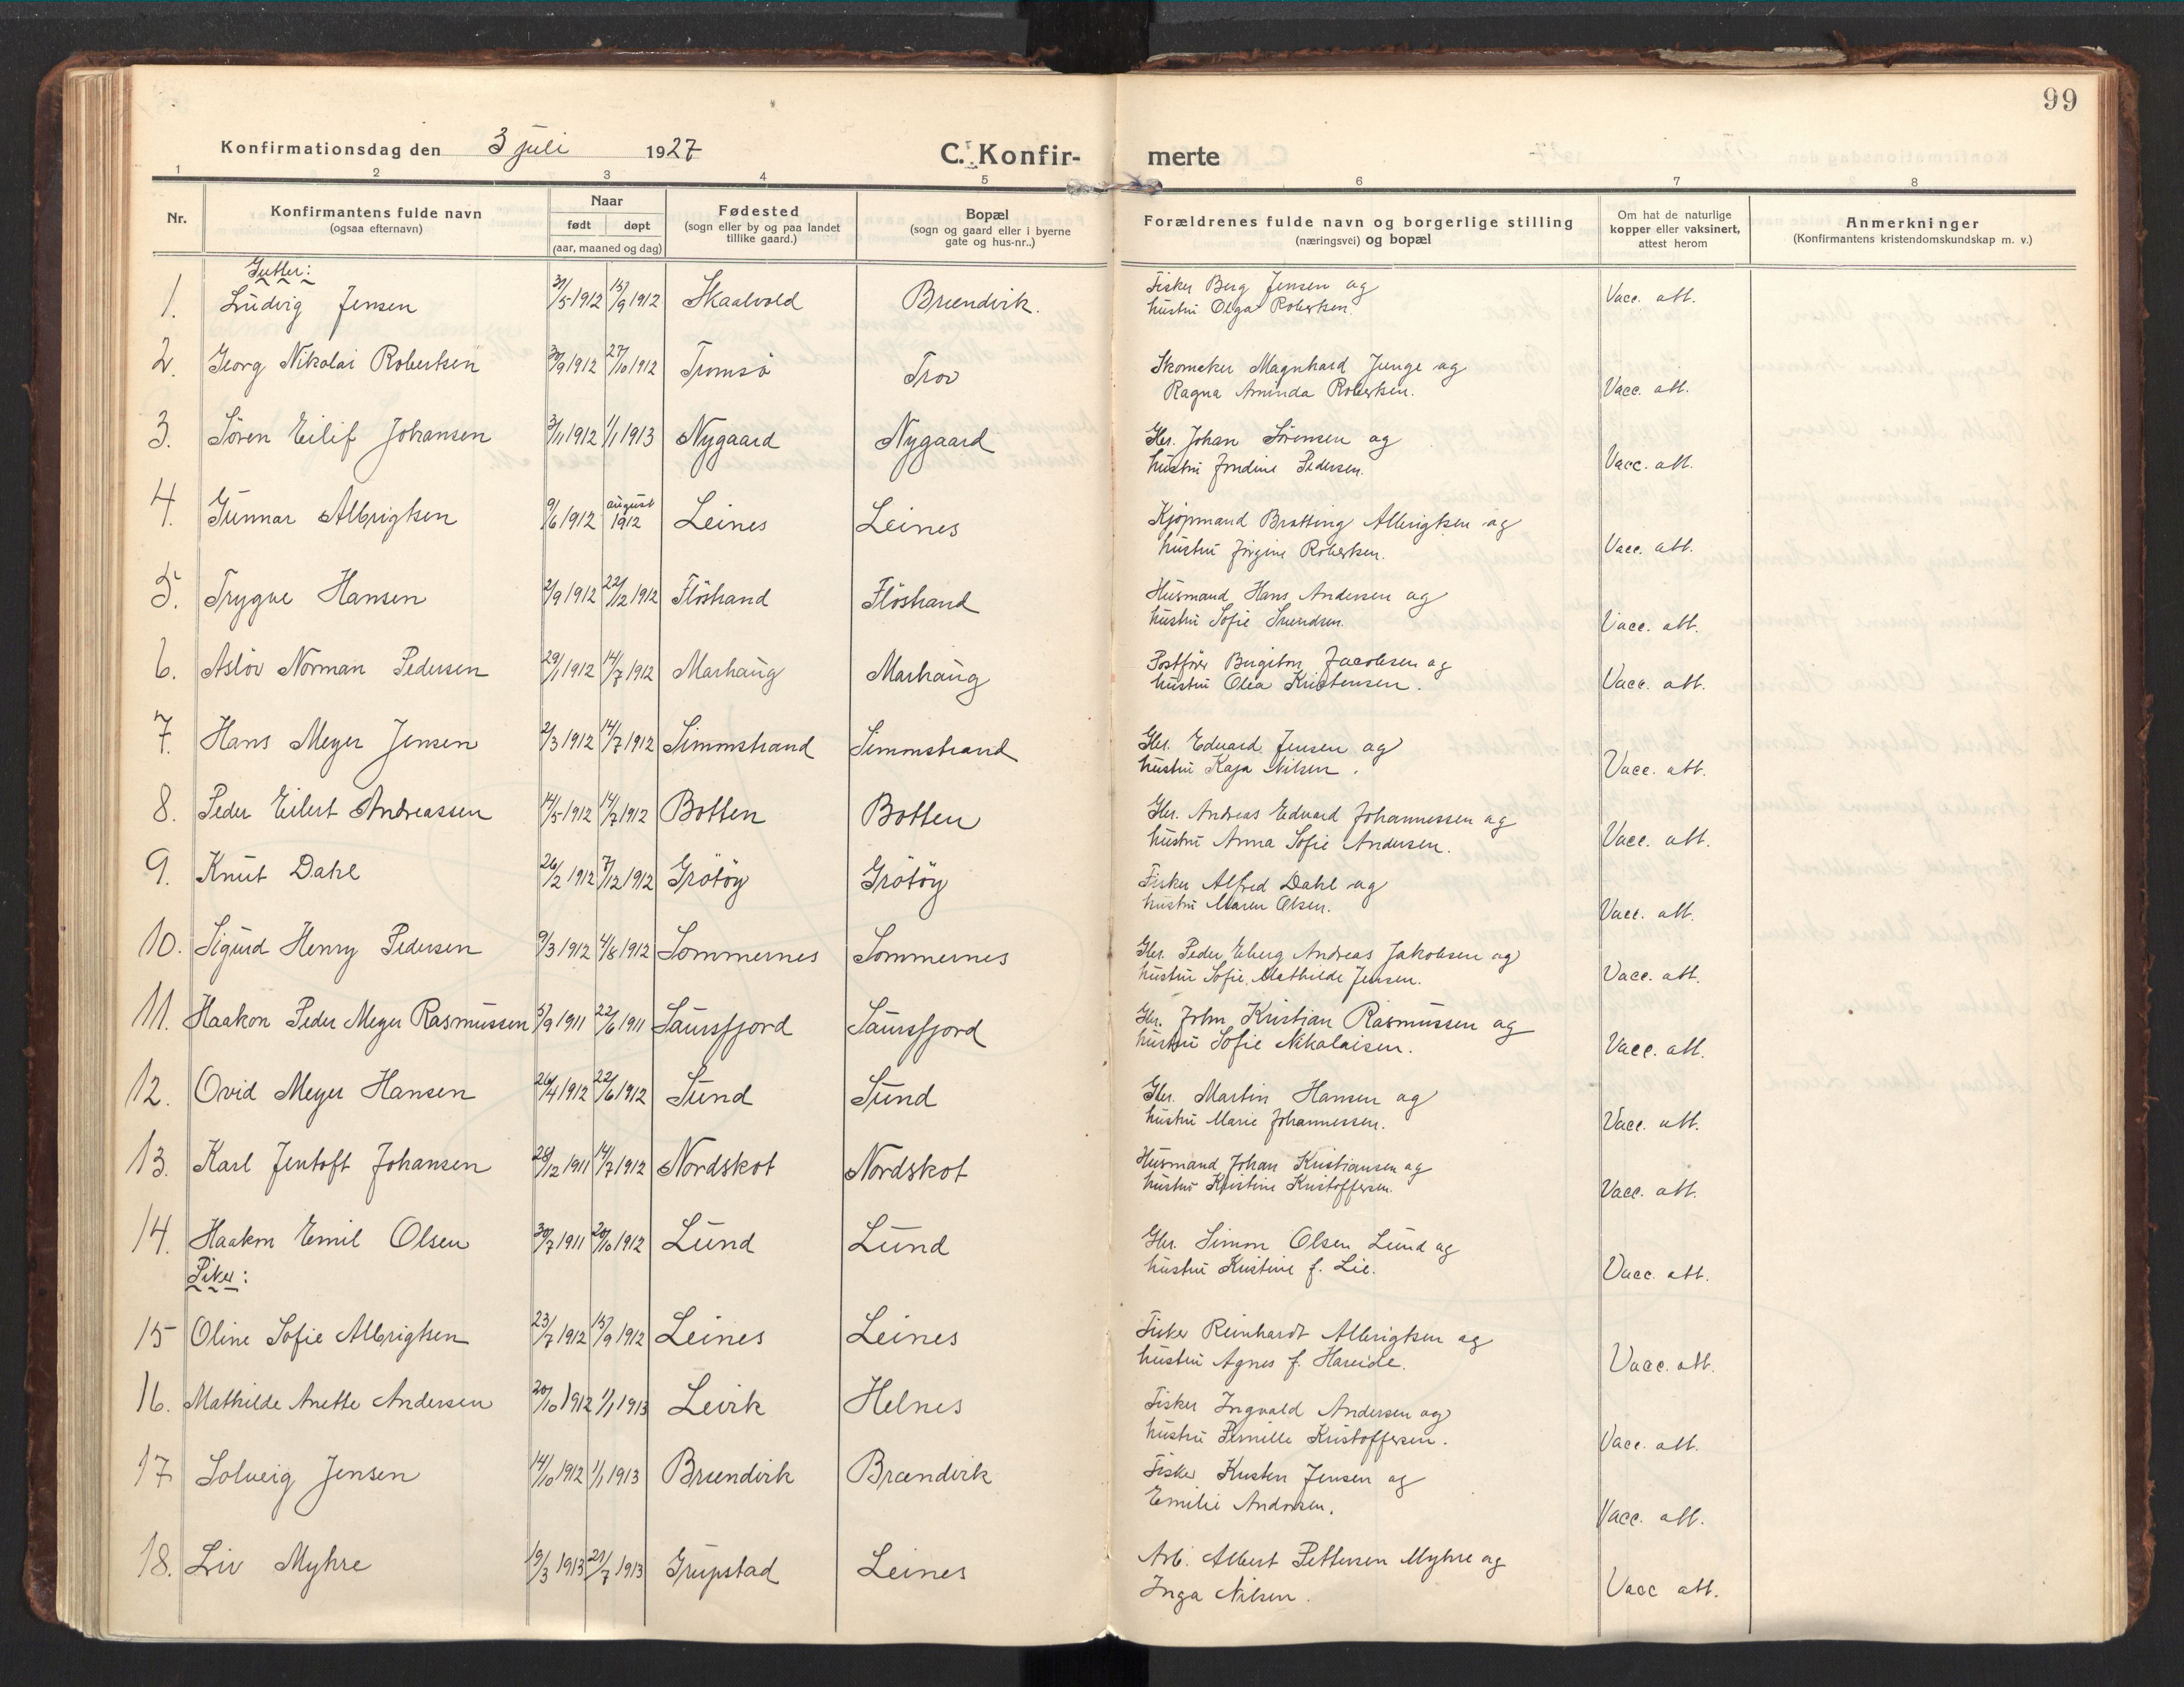 99
Konfirmationsdag den 3 juli 1927
C. Konfir- merte
1 2 3 4 5 6 7 8
Nr.
Konfirmantens fulde navn
(ogsaa efternavn)
Naar
født døpt
(aar, maaned og dag)
Fødested
(sogn eller by og paa landet
tillike gaard.)
Bopæl
(sogn og gaard eller i byerne
gate og hus-nr..)
Forældrenes fulde navn og borgerlige stilling
(næringsvei) og bopæl
Om hat de naturlige
kopper eller vaksinert,
attest herom
Anmerkninger
(Konfirmantens kristendomskundskap m. v.)
Gutter:
1. Ludvig Jensen 31/5 1912 15/9 1912 Skaalvold Brændvik. Fisker Berg Jensen og Vacc. att.
hustru Olga Robertsen.
2. Georg Nikolai Robertsen 30/9 1912 27/10 1912 Tromsö Skomaker Magnhard Junge og
Ragna Aminda Robertsen. Vacc. att.
3. Sören Eilif Johansen 3/11 1912 1/1 1913 Nygaard Nygaard Gbr. Johan Sörensen og
hustru Jondine Pedersen. Vacc. att.
4. Gunnar Albrigtsen 9/6 1912 august 1912 Leines Leines Kjöpmand Bratting Albrigtsen og
hustru Jörgine Robertsen. Vacc. att.
5. Trygve Hansen 2/9 1912 22/12 1912 Flöstrand Flöstrand Husmand Hans Andersen og
hustru Sofie Svendsen. Vacc. att.
6. Aslöv Norman Pedersen 29/1 1912 14/7 1912 Marhaug Marhaug Postförer Jacobsen og
hustru Olea Kristensen. Vacc. att.
7. Hans Meyer Jensen 2/3 1912 14/7 1912 Simmstrand Simmstrand Gbr. Edvard Jensen og
hustru Kaja Nilsen. Vacc. att.
8. Peder Eilert Andreassen 14/5 1912 14/7 1912 Botten Botten Gbr. Andreas Edvard Johannessen og
hustru Anna Sofie Andersen. Vacc. att.
9. Knut Dahl 26/2 1912 7/12 1912 Grötöy Grötöy Fisker Alfred Dahl og
hustru Maren Olsen. Vacc. att.
10. Sigurd Henry Pedersen 9/3 1912 4/8 1912 Sommernes Sommernes Gbr. Peder Eberg Andreas Jakobsen og
hustru Sofie Mathilde Jensen. Vacc. att.
11. Haakon Peder Meyer Rasmussen 5/9 1911 22/6 1911 Saursfjord Saursfjord Gbr. John Kristian Rasmussen og
hustru Sofie Nikolaisen. Vacc. att.
12. Ovid Meyer Hansen 26/4 1912 22/6 1912 Sund Sund Gbr. Martin Hansen og
hustru Marie Johannessen. Vacc. att.
13. Karl Jentoft Johansen 28/12 1911 14/7 1912 Nordskot Nordskot Husmand Johan Kristiansen og
hustru Kristine Kristoffersen. Vacc. att.
14. Haakon Emil Olsen 30/7 1911 20/10 1912 Lund Lund Gbr. Simon Olsen Lund og
hustru Kristine f. Lie. Vacc. att.
Piker:
15 Oline Sofie Albrigtsen 23/7 1912 15/9 1912 Leines Leines Fisker Reinhardt Albrigtsen og
hustru Agnes f. Hareide. Vacc. att.
16. Mathilde Anette Andersen 20/10 1912 1/1 1913 Leivik Helnes Fisker Ingvald Andersen og
hustru Pernille Kristoffersen. Vacc. att.
17 Solveig Jensen 14/10 1912 1/1 1913 Brændvik Brændvik Fisker Kristen Jensen og
Emilie Andersen. Vacc. att.
18. Liv Myhre 19/3 1913 21/7 1913 Grupstad Leines Arb. Albert Pettersen Myhre og
Inga Nilsen. Vacc att.